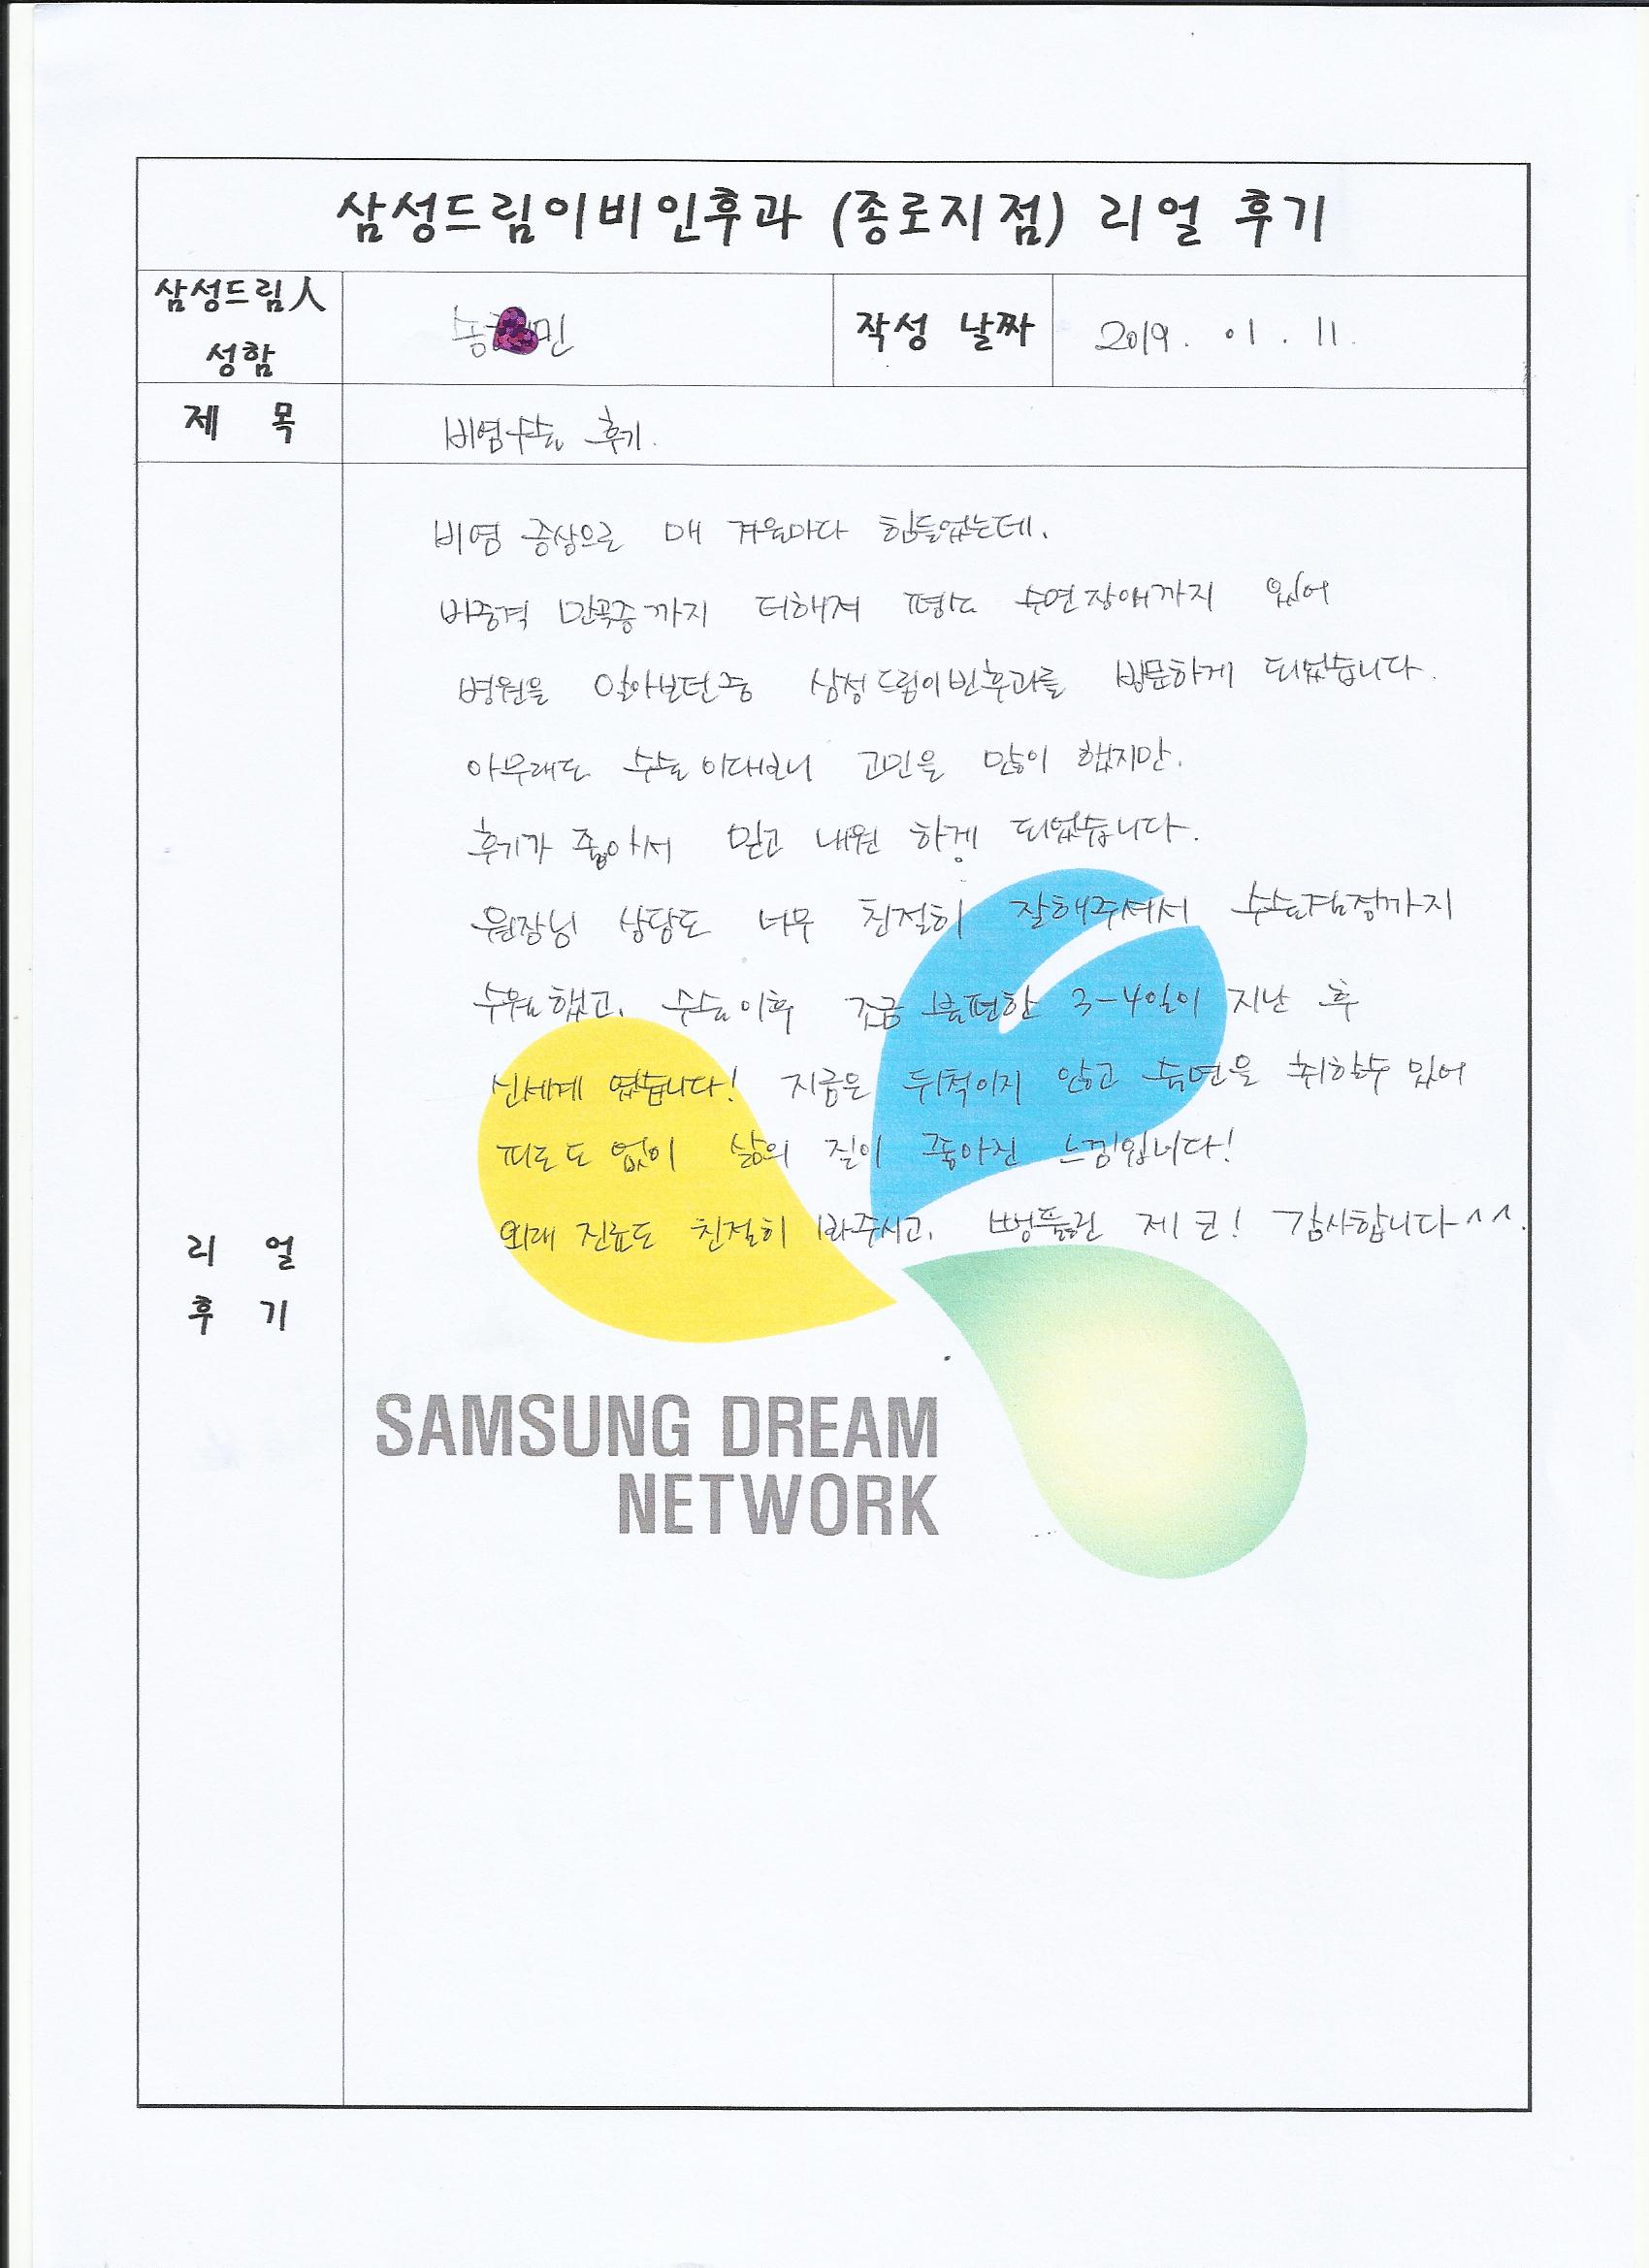 삼성드림이비인후과 (종로지점) 리얼 후기
삼성드림人
성함
송 민
작성 날짜
2019. 01. 11.
제 목
비염수술 후기.
비염 증상으로 매 겨울마다 힘들었는데.
비중격 만곡증까지 더해져 평소 수면장애까지 있어
병원을 알아보던중 삼성드림이빈후과를 방문하게 되었습니다.
아무래도 수술이다보니 고민을 많이 했지만.
후기가 좋아서 믿고 내원 하게 되었습니다.
원장님 상담도 너무 친절히 잘해주셔서 수술결정까지
수월했고. 수술이후 조금 불편한 3-4일이 지난 후
신세계 였습니다! 지금은 뒤척이지 않고 숙면을 취할수 있어
피로도 없이 삶의 질이 좋아진 느낌입니다!
외래 진료도 친절히 봐주시고. 뻥뚫린 제 코! 감사합니다^^.
리 얼
후 기
SAMSUNG DREAM
NETWORK